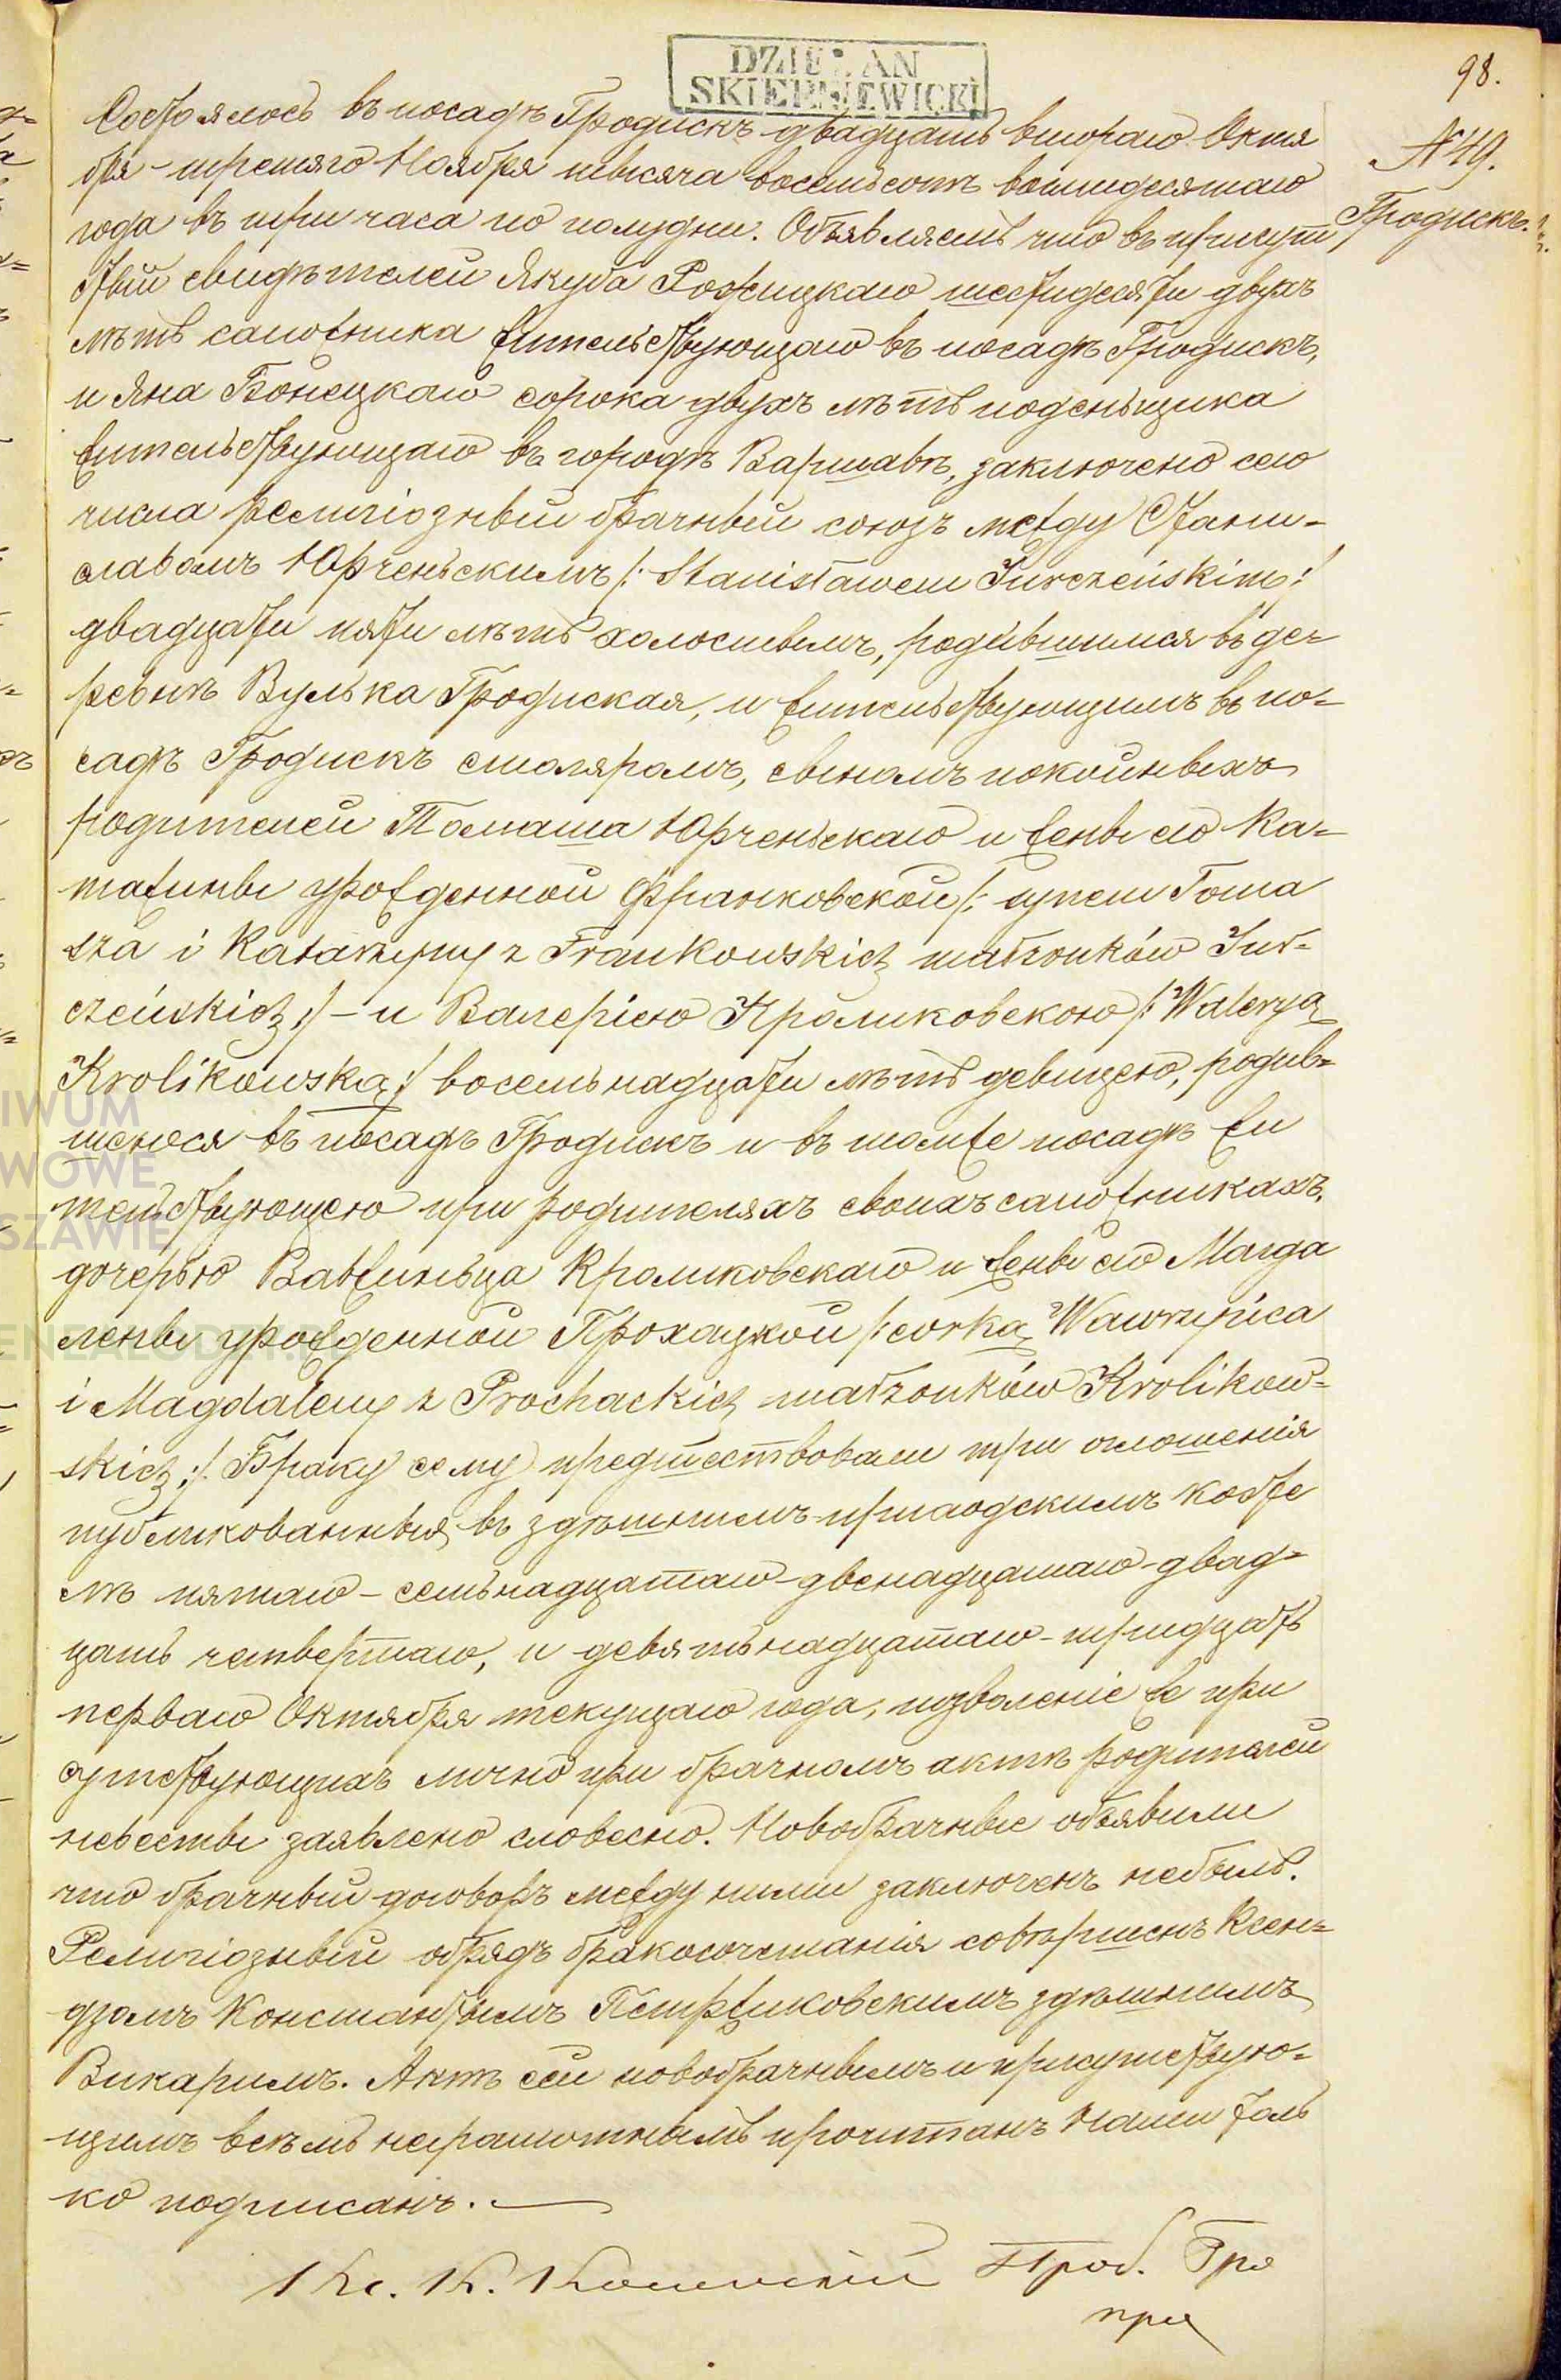 DZIEKAN
SKIERNIEWICKI
98.
Состоялось въ посадѣ Гродискъ двадцать втораго Октя
бря - третяго Ноября тысяча восемьсотъ восмидесятаго
года въ три часа по полудни. Объявляемъ что въ присут
ствіи свидѣтелей Якуба Рожицкаго шестидесяти двухъ
лѣтъ сапожника жительствующаго въ посадѣ Гродискъ,
и Яна Бонецкаго сорока двухъ лѣтъ поденьщика
жительствующаго въ городѣ Варшавѣ, заключено сего
числа религіозный брачный союзъ между Стани-
славомъ Юрченьскимъ /: Stanisławem Jurczeńskim :/
двадцати пяти лѣтъ холостымъ, родившимся въ де=
ревнѣ Вулька Гродиская, и жительствующимъ въ по=
садѣ Гродискъ столяромъ, сыномъ покойныхъ
родителей Томаша Юрченьскаго и жены его Ка=
тажины урожденной Франковской /: synem Toma
sza i Katarzyny z Frankowskich małżonków Jur-
czeńskich :/ - и Валеріею Кроликовскою /: Waleryą
Krolikowską :/ восемьнадцати лѣтъ девицею, родив=
шеюся въ посадѣ Гродискъ и въ томже посадѣ жи
тельствующею при родителяхъ своихъ сапожникахъ,
дочерью Вавжиньца Кроликовскаго и жены его Магда
лены урожденной Прохацкой /: corką Wawrzyńca
i Magdaleny z Prochackich małżonków Krolikow-
skich :/. Браку сему предшествовали три оглошенія
публикованныя въ здѣшнемъ приходскимъ косте
лѣ пятаго - семьнадцатаго - двенадцатаго - двад=
цать четвертаго, и девятьнадцатаго - тридцать
перваго Октября текущаго года, позволеніе же при
сутствующихъ лично при брачномъ актѣ родителей
невесты заявлено словесно. Новобрачные объявили
что брачный договоръ между ними заключенъ небылъ.
Религіозный обрядъ бракосочетанія совершенъ Ксен=
дзомъ Константымъ Петржиковскимъ здѣшнимъ
Викаримъ. Актъ сей новобрачнымъ и присутствую=
щимъ всѣмъ неграмотнымъ прочитанъ Нами толь
ко подписанъ. —
Кс. К. Проб. Гро
при
№ 49.
Гродискъ.